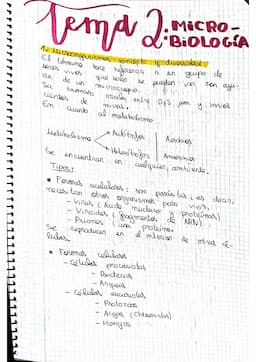 Tema 2: MICRO-
BIOLOGÍA
1. Microorganismos: concepto y diversidad
El término hace referencia a un grupo de
seres vivos que solo se pueden ver con ayu-
da de un microscopio.
Su tamaño oscila entre 0,5 µm y varios
cientos de micras.
En cuanto al metabolismo:
Metabolismo
Autótrofos
Heterótrofos
Aerobios
Anaerobios
Se encuentran en cualquier ambiente.
Tipos:
• Formas acelulares: son parásitas, es decir,
necesitan otros organismos para vivir.
- Virus (Ácido nucleico y proteínas)
- Viroides (fragmentos de ARN)
- Priones (una proteína)
Se reproducen en el interior de otras cé-
lulas.
• Formas celulares
- Células procariotas
- Bacterias
- Arqueas
- Células eucariotas
- Protozoos
- Algas (Chromista)
- Hongos